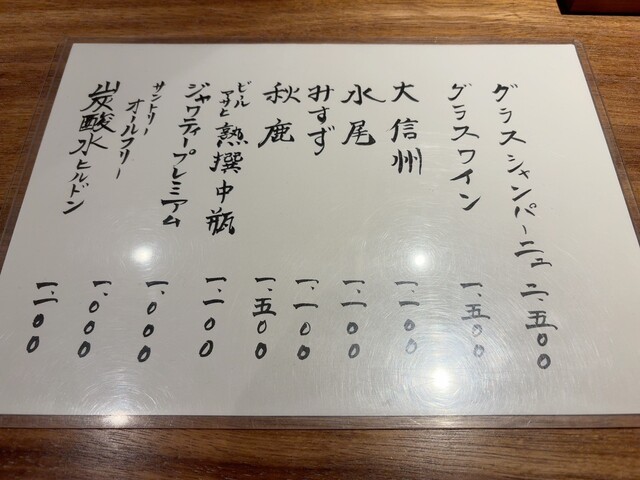 グラスシャンパーニュ 二、五〇〇
グラスワイン 一、五〇〇
大信州 一、一〇〇
水尾 一、一〇〇
みすず 一、一〇〇
秋鹿 一、五〇〇
ビール アサヒ 熟撰中瓶 一、一〇〇
ジャワティープレミアム 一、〇〇〇
サントリー オールフリー 一、〇〇〇
炭酸水・ヒルドン 一、一〇〇